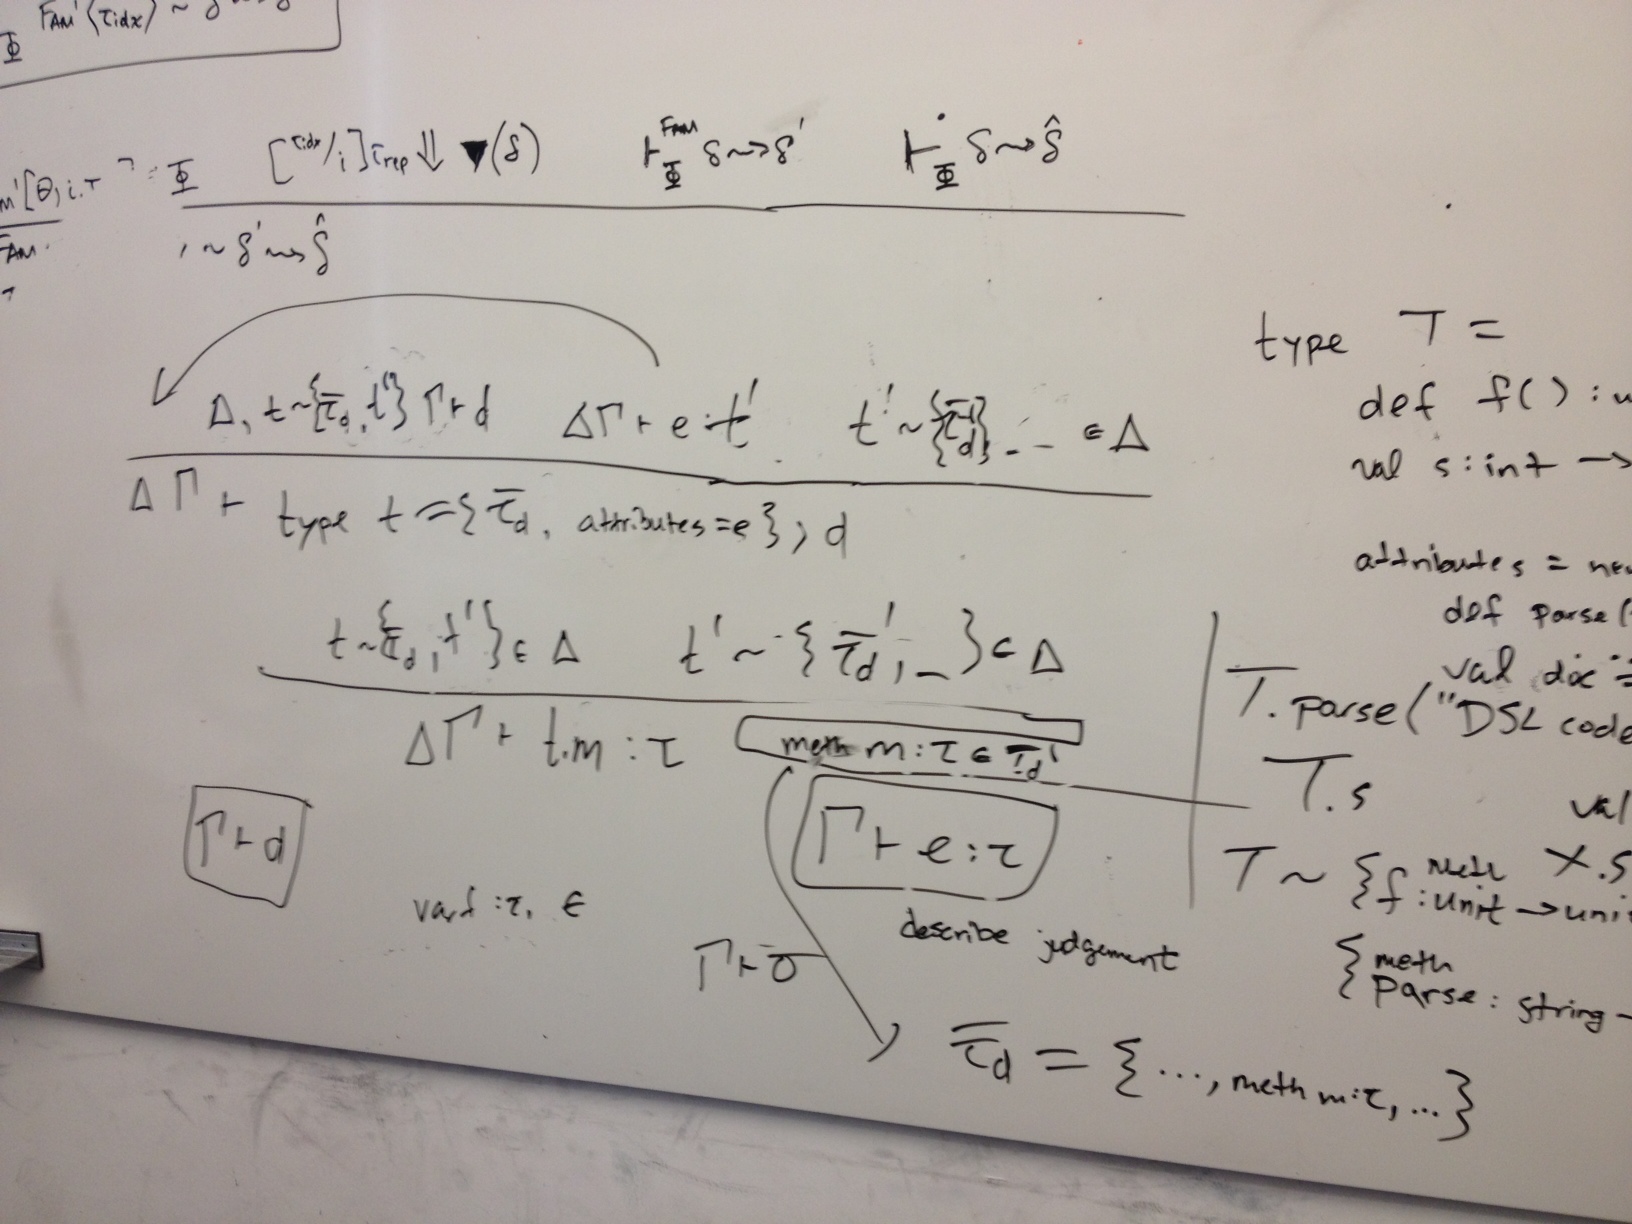 FAM'⟨τidx⟩ ~
Φ
[τidx/i]τrep ⇓ ▼(δ) ⊢ FAM Φ δ ⇝ δ' ⊢ Φ δ ⇝ δ̂
'[θ, i.τ = Φ
FAM
~ δ' ⇝ δ̂
Δ, t ~ {τ̄d, t'} Γ ⊢ d ΔΓ ⊢ e : t' t' ~ {τ̄d'}, _ ∈ Δ
ΔΓ ⊢ type t = {τ̄d, attributes = e}; d
t ~ {τ̄d, t'} ∈ Δ t' ~ {τ̄d', _} ∈ Δ
ΔΓ ⊢ t.m : τ meth m : τ ∈ τ̄d'
Γ ⊢ d
Γ ⊢ e : τ
: τ, ∈
describe judgement
Γ ⊢ σ̄
τ̄d = {..., meth m:τ, ...}
type T =
def f() : u
val s : int →
attributes = new
def parse(
val doc :
T.parse("DSL code
T.s val
T ~ {meth X.s
f : unit → uni
{meth
parse : string →